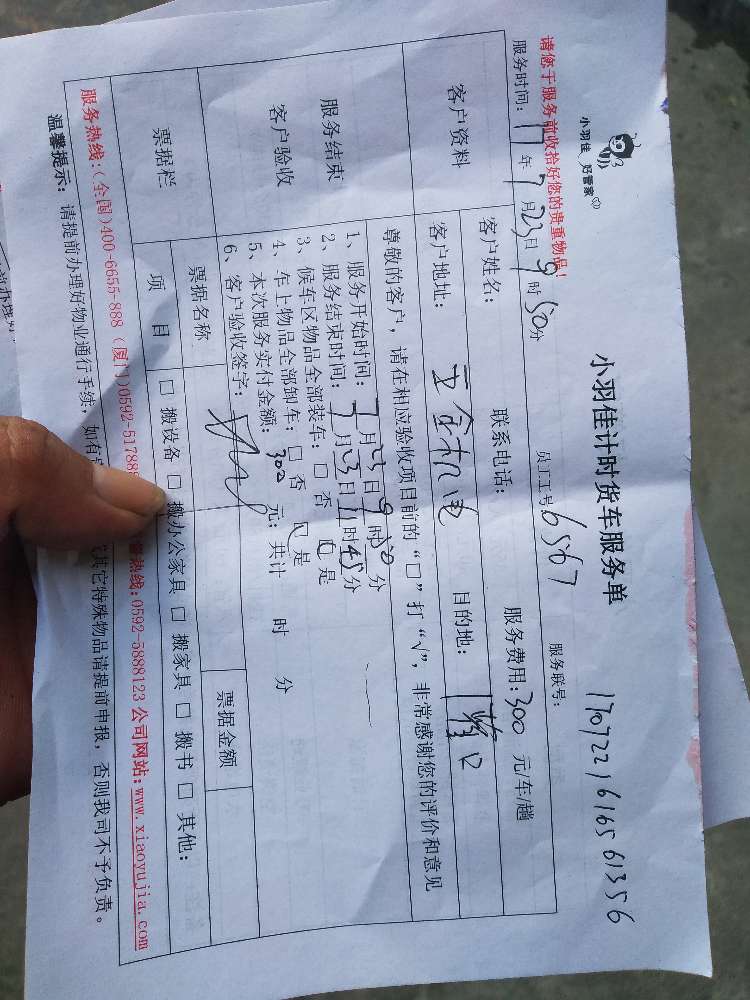 小羽佳 好管家
小羽佳计时货车服务单
1707221616561356
请您于服务前收拾好您的贵重物品!
员工工号:6567
服务联号:
服务时间:17年7月23日9时50分
客户资料
客户姓名:
联系电话:
服务费用:300元/车/趟
客户地址:
五金机电
目的地:
服务结束
客户验收
尊敬的客户,请在相应验收项目前的“□”打“√”,非常感谢您的评价和意见
1、服务开始时间:7月23日9时50分
2、服务结束时间:7月23日11时45分
3、候车区物品全部装车:□否 □是
4、车上物品全部卸车:□否 □是
5、本次服务实付金额:300元;共计 时 分
6、客户验收签字:
票据栏
票据名称
票据金额
项 目
□ 搬设备 □ 搬办公家具 □ 搬家具 □ 搬书 □ 其他:
服务热线:(全国)400-6655-888(厦门)0592-517888 热线:0592-5888123 公司网站:www.xiaoyujia.com
温馨提示: 请提前办理好物业通行手续,如有 其它特殊物品请提前申报,否则我司不予负责。